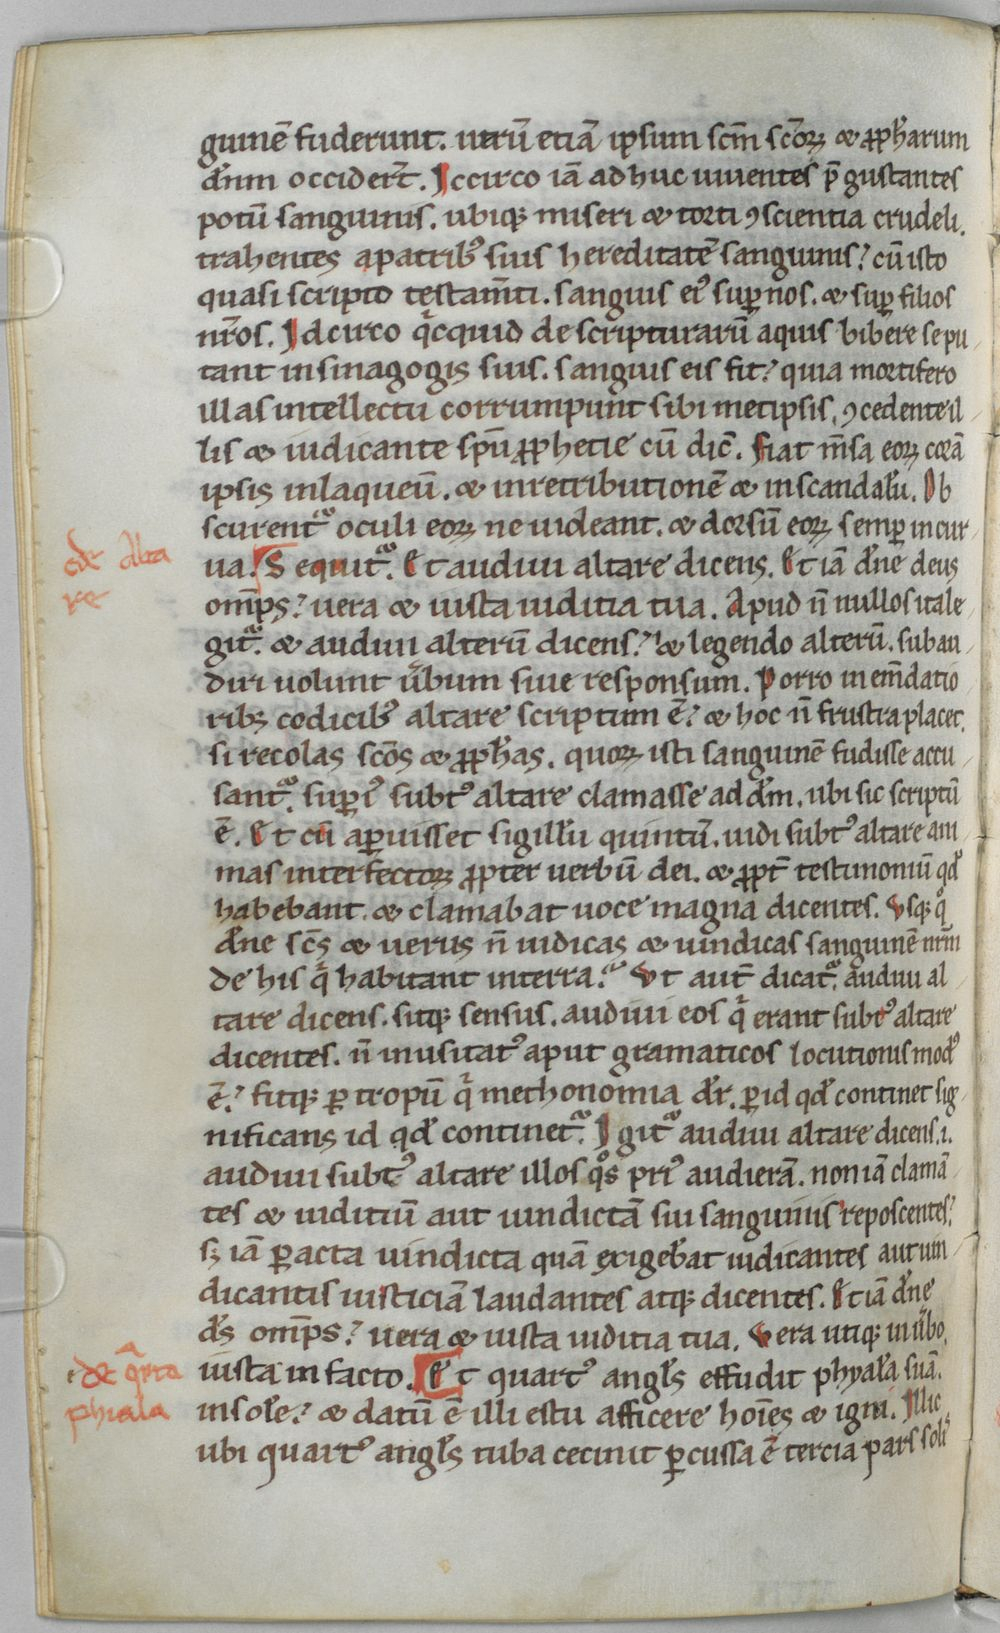 guinē fuderunt. uerū etiā ipsum scm̄ scōꝝ ⁊ ꝓph̄arum
dn̄m occider̄t. Iccirco iā adhuc uiuentes p̄gustantes
potū sanguinis. ubiqꝫ miseri ⁊ torti ꝯscientia crudeli.
trahentes a patribꝰ suis hereditatē sanguinis? cū isto
quasi scripto testam̄ti. sanguis eiꝰ suꝑ nos. ⁊ suꝑ filios
nr̄os. Idcirco qͥcquid de scripturarū aquis bibere se pu
tant in sinagogis suis. sanguis eis fit? quia mortifero
illas intellectu corrumpunt sibimetipsis. ꝯcedente il
lis ⁊ iudicante spū ꝓphetie cū dic̄. Fiat m̄sa eoꝝ corā
ipsis in laqueū. ⁊ in retributionē ⁊ in scandalū. Ob
scurent᷑ oculi eoꝝ ne uideant. ⁊ dorsū eoꝝ semꝑ incur
ua. Sequit᷑. Et audiui altare dicens. Etiā dn̄e deus
om̄ps? uera ⁊ iusta iuditia tua. Apud n̄nullos ita le
git᷑. ⁊ audiui alterū dicens? ⁊ legendo alterū. subau
diri uolunt u̅bum siue responsum. Porro in em̄datio
ribꝫ codicibꝰ altare scriptum ē? ⁊ hoc n̄ frustra placet.
si recolas scōs ⁊ ꝓph̄as. quoꝝ isti sanguinē fudisse accu
sant᷑. suꝑiꝰ subtꝰ altare clamasse ad dn̄m. ubi sic scriptū
ē. Et cū aꝑuisset sigillū quintū. uidi subtꝰ altare ani
mas interfectoꝝ ꝓpter uerbū dei. ⁊ ꝓpt̄ testimoniū qd̄
habebant. ⁊ clamabāt uoce magna dicentes. Usqꝫ qͦ
dn̄e scs̄ ⁊ uerus n̄ iudicas ⁊ uindicas sanguinē nr̄m
de his qͥ habitant in terra? Ut aut̄ dicat᷑. audiui al
tare dicens. sitqꝫ sensus. audiui eos qͥ erant subtꝰ altare
dicentes. n̄ inusitatꝰ aput gramaticos locutionis modꝰ
ē? fitqꝫ ꝑ tropū qͥ methonomia dr̄. ꝑ id qd̄ continet sig
nificans id qd̄ continet᷑. Igit᷑ audiui altare dicens .i.
audiui subtꝰ altare illos qͦs priꝰ audierā. non iā clamā
tes ⁊ iuditiū aut uindictā sui sanguinis reposcentes?
sꝫ iā ꝑacta uindicta quā exigebāt iudicantis aut uin
dicantis iusticiā laudantes atqꝫ dicentes. Etiā dn̄e
ds̄ om̄ps? uera ⁊ iusta iuditia tua. Vera utiqꝫ in u̅bo.
iusta in facto. Et quartꝰ angls̄ effudit phyalā suā.
in sole? ⁊ datū ē illi estu afficere hoīes ⁊ igni. Illic
ubi quartꝰ angls̄ tuba cecinit ꝑcussa ē tercia pars solis
de alta
re
de qͣrta
phiala